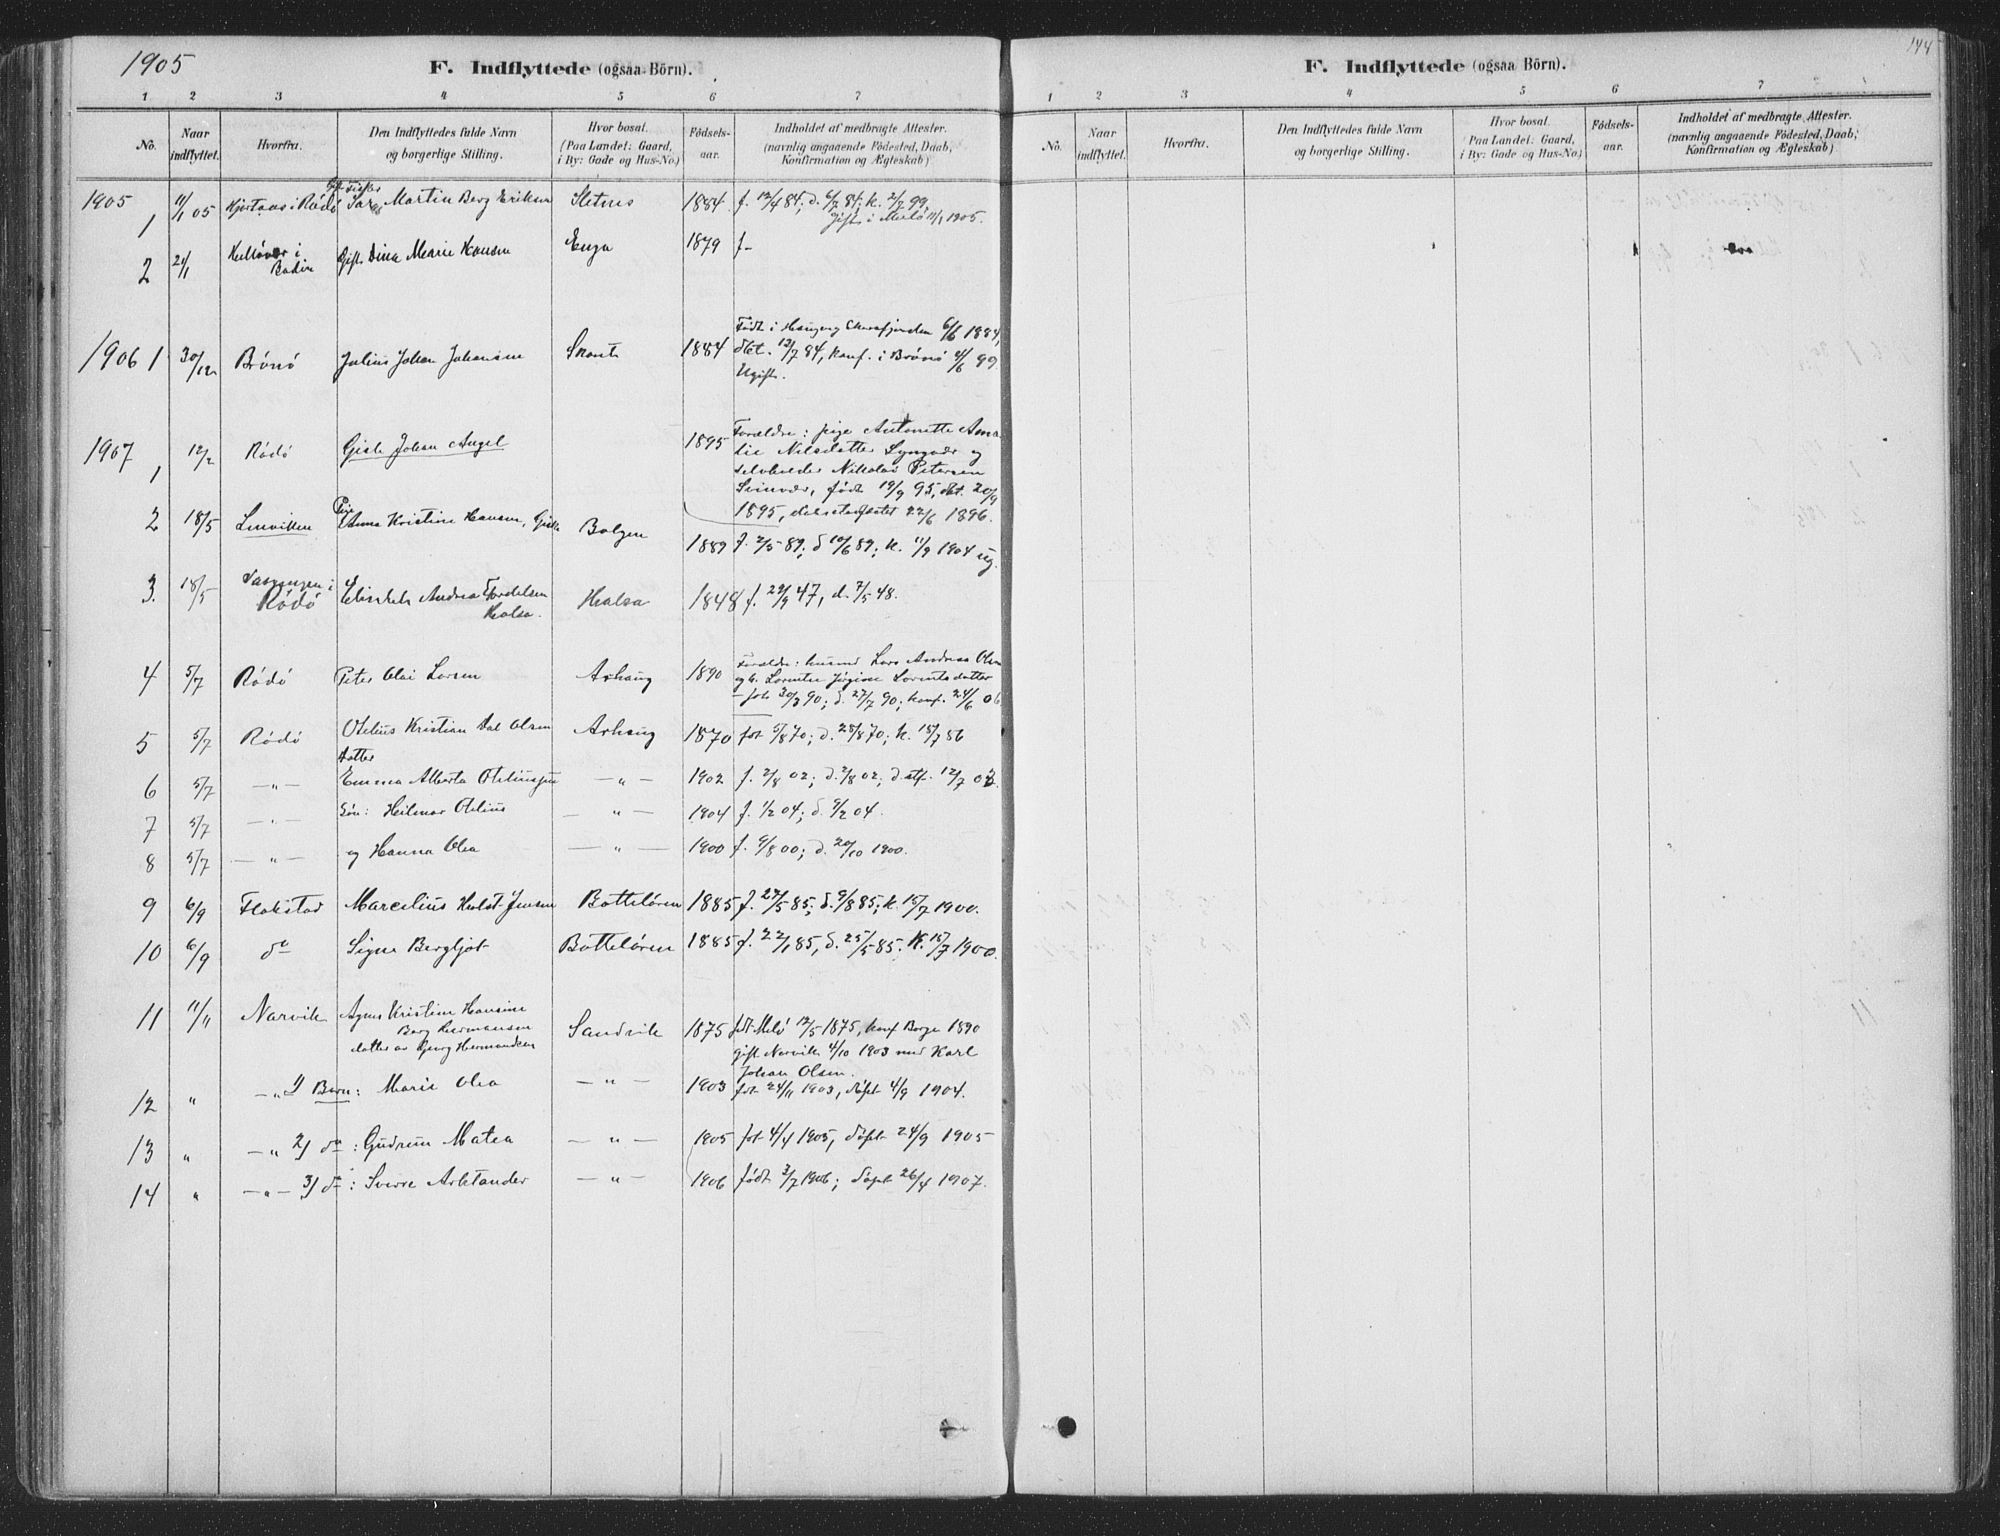 1905
F. Indflyttede (ogsaa Börn).
1 2 3 4 5 6 7
No. Naar indflyttet. Hvorfra. Den Indflyttedes fulde Navn og borgerlige Stilling. Hvor bosat. (Paa Landet: Gaard, i By: Gade og Hus-No.) Födsels-aar. Indholdet af medbragte Attester. (navnlig angaaende Födested, Daab, Konfirmation og Ægteskab)
1905
1 11/1 05 i Rödö Martin Berg Eriksen 1884 f. 12/4 84; d. 6/7 84; k. 2/7 99.
Gift i Melö 11/1 1905.
2 21/1 i Gift Dina Marie Hansen Enga 1879 f-
Født i 6/6 1884,
1906 1 30/12 Brönö Julius Johan Johansen 1884 dbt. 12/7 84, konf. i Brönö 4/6 99.
Ugift.
1907 1 12/2 Rödö Johan Angel 1895 Forældre: pige Antonette Ama-
lie Nilsdatter og
Nikolai Petersen
født 19/9 95, dbt. 20/9
1895, 22/6 1896.
2 18/5 Pige Anna Kristine Hansen, Bolgen 1889 f. 2/5 89; d. 10/6 89; k. 11/9 1904 ug.
3. 18/5 i
Rödö Andrea
Halsa. Halsa 1848 f. 29/9 47, d. 7/5 48.
4 5/7 Rödö Peter Olai Larsen Åshaug 1890 Forældre: husmd Lars Andreas Olsen
og h. Lorentse Jørgine Lorentsdatter
30/3 90; d. 27/7 90; konf. 24/6 06
5 5/7 Rödö Otelius Kristian Olsen Åshaug 1870 fot 5/8 70; d. 28/8 70; k. 15/7 86
Datter
6 5/7 —"— Emma Alberta —"— 1902 f. 2/8 02; d. 2/8 02; d. stf. 12/7 03
7 5/7 —"— Sön: Heilmar Otelius —"— 1904 f. 1/2 04; d. 9/2 04.
8 5/7 —"— og Hanna Olea —"— 1900 f. 9/8 00; d. 20/10 1900.
9 6/9 Flakstad Marcelius Holst Jensen Bottelören 1885 f. 27/5 85; d. 9/8 85; k. 15/7 1900.
10 6/9 do Signe Bergljot Bottelören 1885 f. 22/1 85, d. 25/5 85. K. 15/7 1900.
11 11/11 Narvik Agnes Kristine Hansine
Berg Hermansen
datter av Georg Hermansen Sandvik 1875 født Melö 12/5 1875, konf Borge 1890
gift Narvik 4/10 1903 med Karl
Johan Olsen.
12 " —"— 1) Barn: Marie Olea —"— 1903 fot 24/11 1903, döpt 4/9 1904.
13 " —"— 2) do: Gudrun Matea —"— 1905 fot 4/4 1905, döpt 24/9 1905
14 " —"— 3) do: Sverre Arktander —"— 1906 født 3/7 1906; döpt 26/4 1907.
144
F. Indflyttede (ogsaa Börn).
1 2 3 4 5 6 7
No. Naar indflyttet. Hvorfra. Den Indflyttedes fulde Navn og borgerlige Stilling. Hvor bosat. (Paa Landet: Gaard, i By: Gade og Hus-No.) Födsels-aar. Indholdet af medbragte Attester. (navnlig angaaende Födested, Daab, Konfirmation og Ægteskab)